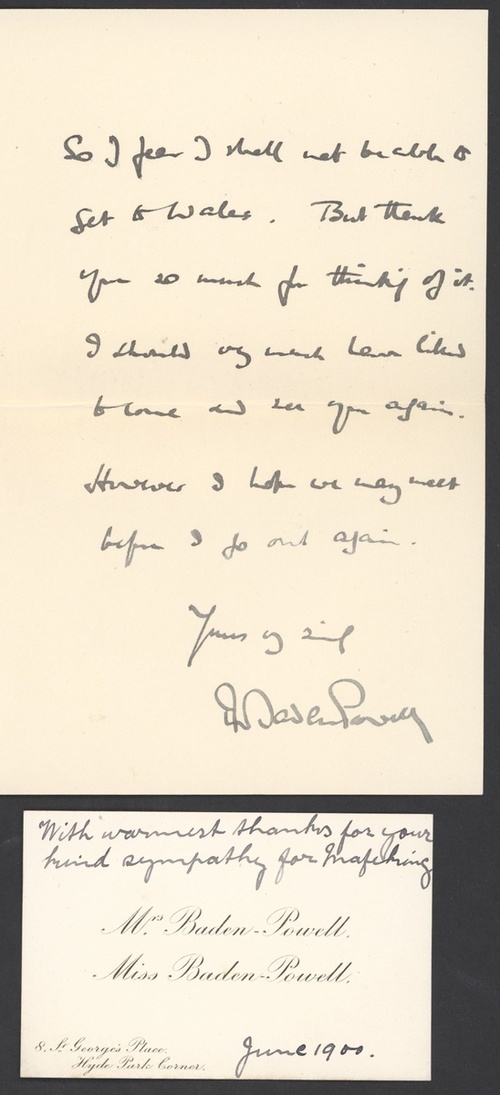 So I fear I shall not be able to
get to Wales. But thank
you so much for thinking of it.
I should very much have liked
to come and see you again.
However I hope we may meet
before I go out again.
Yours vy sincly
RBadenPowell
With warmest thanks for your
kind sympathy for Mafeking
Mrs Baden-Powell.
Miss Baden-Powell.
8. St George's Place,
Hyde Park Corner.
June 1900.